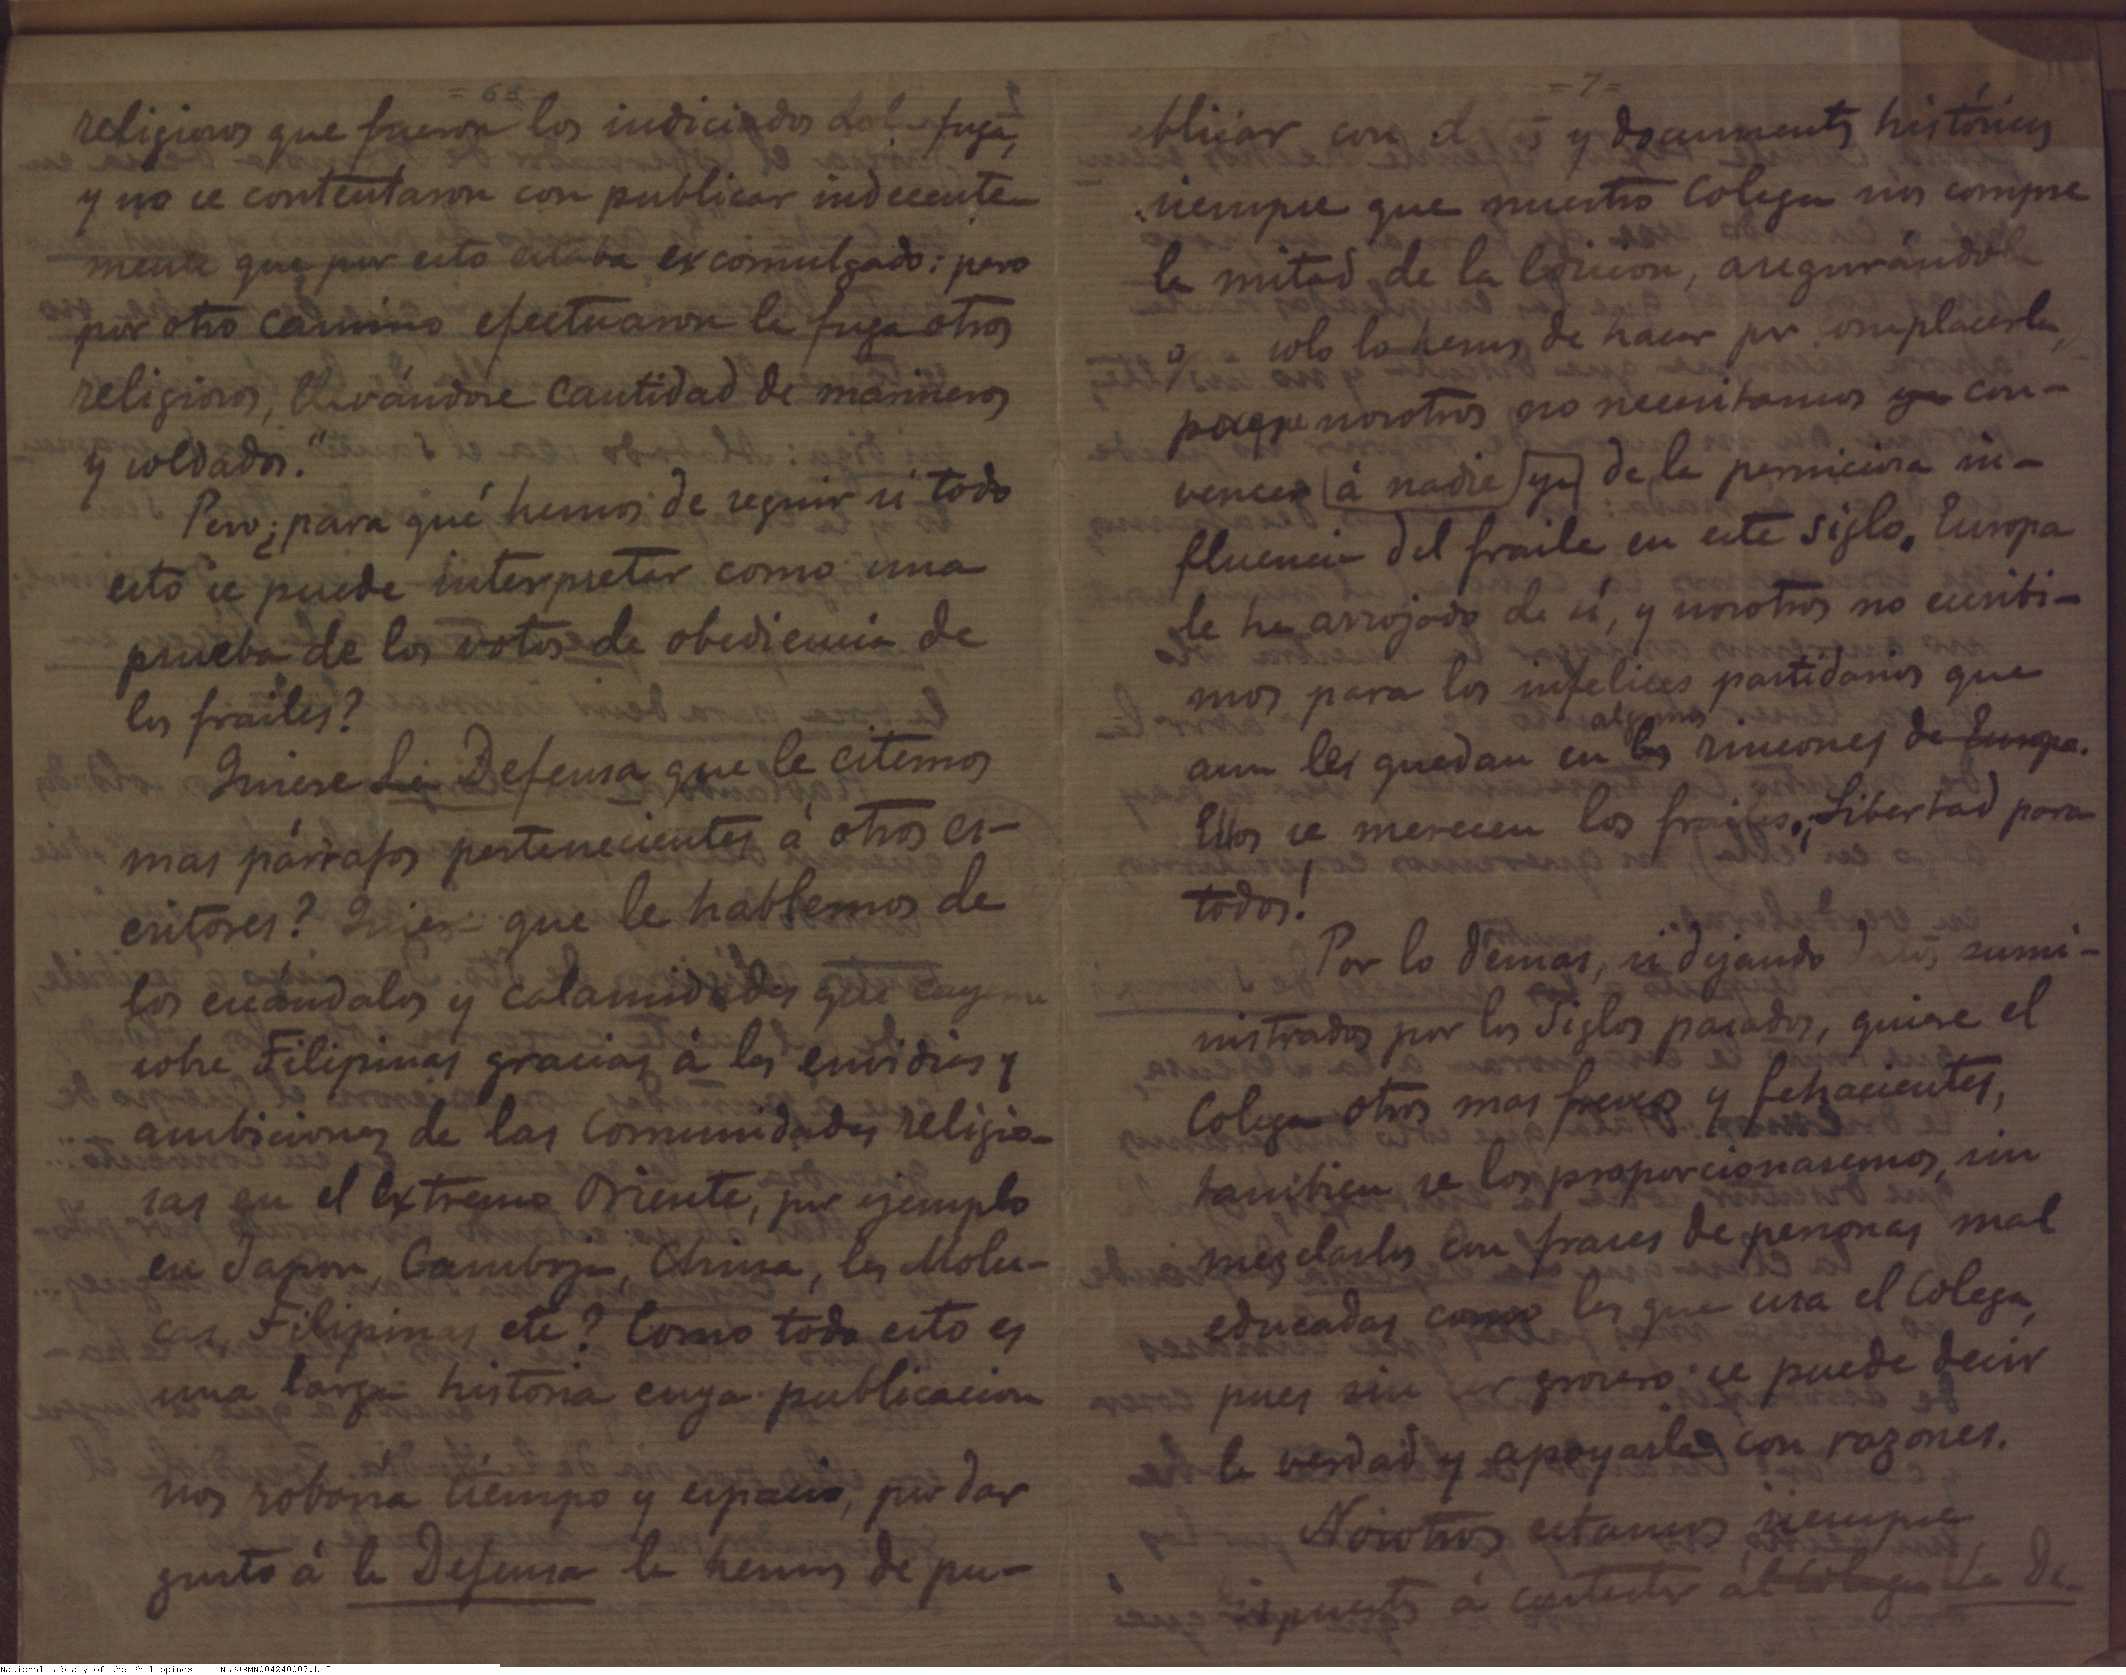 religiosos que fueron los indiciados de la fuga,
y no se contentaron con publicar indecente-
mente que por esto estaba excomulgado: pero
por otro camino efectuaron la fuga otros
religiosos, llevándose cantidad de marineros
y soldados."
Pero ¿para qué hemos de seguir si todo
esto se puede interpretar como una
prueba de los votos de obediencia de
los frailes?
Quiere La Defensa que le citemos
mas párrafos pertenecientes á otros es-
critores? Quiere que le hablemos de
los escándalos y calamidades que cayeron
sobre Filipinas gracias á las envidias y
ambiciones de las Comunidades religio-
sas en el extremo Oriente, por ejemplo
en Japon, Camboja, China, las Molu-
cas, Filipinas etc? Como todo esto es
una larga historia cuya publicacion
nos robaria tiempo y espacio, por dar
gusto á la Defensa la hemos de pu-
=7=
blicar con y documentos históricos
siempre que nuestro Colega nos compre
la mitad de la Edicion, asegurándole
solo lo hemos de hacer por complacerla,
porque nosotros no necesitamos ya con-
vencer á nadie ya de la perniciosa in-
fluencia del fraile en este siglo. Europa
le ha arrojado de sí, y nosotros no escribi-
mos para los infelices partidarios que
algunos
aun les quedan en los rincones de Europa.
Ellos se merecen los frailes. ¡Libertad para
todos!
Por lo demas, si dejando datos sumi-
nistrados por los Siglos pasados, quiere el
Colega otros mas frescos y fehacientes,
tambien se los proporcionaremos, sin
mezclarlos con frases de personas mal
educadas como las que usa el Colega,
pues sin ser grosero se puede decir
la verdad y apoyarla con razones.
Nosotros estamos siempre
dispuestos á contestar al Colega La De-